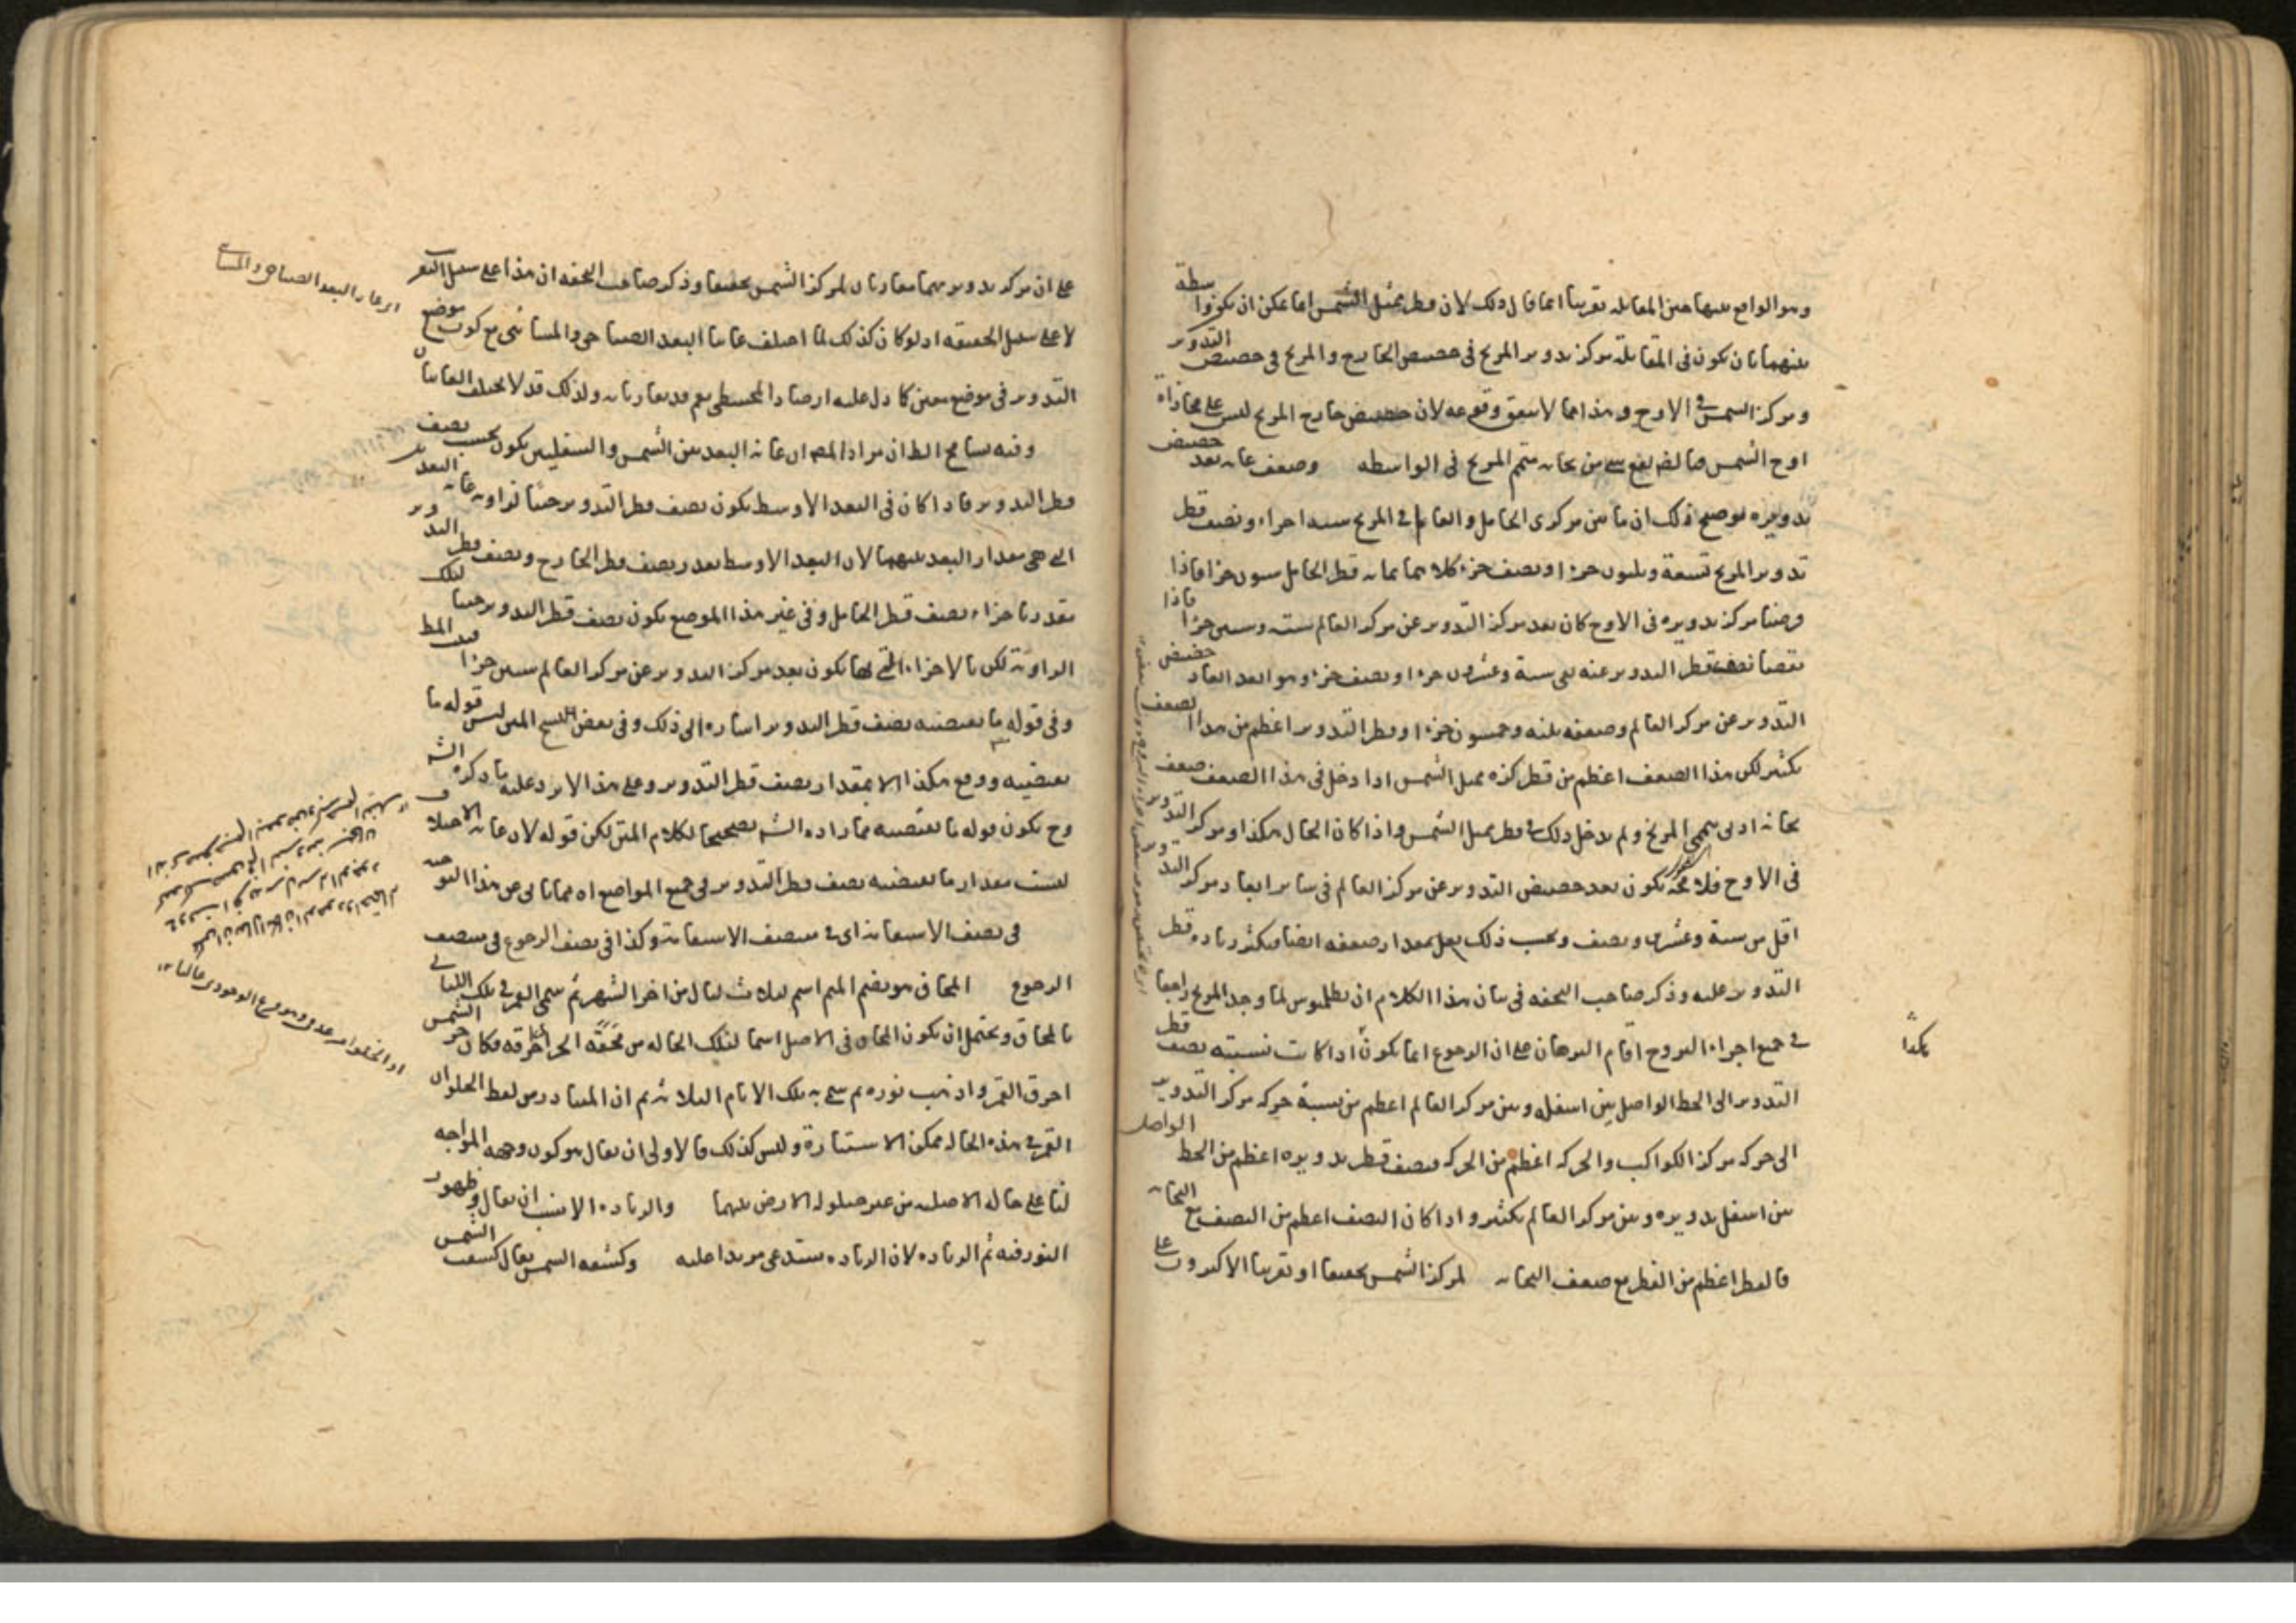 وهو الواقع بينهما حين المقابلة تقريبا انما قال ذلك لان قطر ممثل الشمس انما يمكن ان يكون واسطة
بينهما بان يكون في المقابلة مركز تدوير المريخ في حضيض الخارج والمريخ في حضيض التدوير
ومركز الشمس في الاوج وهذا مما لا يتفق وقوعه لان حضيض خارج المريخ ليس على محاذاة
اوج الشمس فبالضم يقع شي من ثخانة متمم المريخ في الواسطه وضعف غاية بعد حضيض
تدويره توضيح ذلك ان ما بين مركزي الحامل والعالم في المريخ ستة اجزاء ونصف قطر
تدوير المريخ تسعة وثلثون جزءا ونصف جزء كلاهما بما به قطر الحامل ستون جزءا فاذا
فرضنا مركز تدويره في الاوج كان بعد مركز التدوير عن مركز العالم ستة وستين جزءا فاذا
نقصنا نصف قطر التدوير عنه بقي ستة وعشرون جزءا ونصف جزء وهو ابعد ابعاد حضيض
التدوير عن مركز العالم وضعفه ثلثة وخمسون جزءا وقطر التدوير اعظم من هذا الضعف
بكثير لكن هذا الضعف اعظم من قطر كرة ممثل الشمس اذا دخل في هذا الضعف ضعف
ثخانة ادنى متممي المريخ ولم يدخل ذلك في قطر ممثل الشمس واذا كان الحال هكذا ومركز التدوير
في الاوج فلا محة يكون بعد حضيض التدوير عن مركز العالم في سائر ابعاد مركز التدوير
اقل من ستة وعشرين ونصف وبحسب ذلك يقل مقدار ضعفه ايضا فيكثر زيادة قطر
التدوير عليه وذكر صاحب التحفه في بيان هذا الكلام ان بطلميوس لما وجد المريخ راجعا
في جميع اجزاء البروج اقام البرهان على ان الرجوع انما يكون اذا كانت نسبته نصف قطر
التدوير الى الخط الواصل بين اسفله وبين مركز العالم اعظم من نسبة حركة مركز التدوير
الى حركة مركز الكواكب والحركه اعظم من الحركه فنصف قطر تدويره اعظم من الخط الواصل
بين اسفل تدويره وبين مركز العالم بكثير واذا كان النصف اعظم من النصف مع الثخانة
فالقطر اعظم من القطر مع ضعف الثخانة لمركز الشمس تحقيقا او تقريبا الاكثرون على
هكذا
على ان مركز تدويرهما مقارنان لمركز الشمس تحقيقا وذكر صاحب التحفه ان هذا على سبيل التقريب
لا على سبيل الحقيقة اذ لو كان كذلك لما اختلف غايتا البعد الصباحي والمسائي مع كون موضع
التدوير في موضع معين كما دل عليه ارصاد المجسطي نعم قد يقارنانه ولذلك قد لا يختلف الغايتان
وفيه تسامح الظ ان مراد المص ان غاية البعد بين الشمس والسفليين يكون بحسب نصف
قطر التدوير فاذا كان في البعد الاوسط يكون نصف قطر التدوير جيبا لزاوية غاية البعد
التي هي مقدار البعد بينهما لان البعد الاوسط بقدر نصف قطر الخارج ونصف قطر التدوير
مقدر باجزاء نصف قطر الحامل وفي غير هذا الموضع يكون نصف قطر التدوير جيبا لتلك
الزاوية لكن بالاجزاء التي بها يكون بعد مركز التدوير عن مركز العالم ستين جزءا
وفي قوله ما يقتضيه نصف قطر التدوير اشارة الى ذلك وفي بعض النسخ المتن ليس قوله ما
يقتضيه ووقع هكذا الا بمقدار نصف قطر التدوير وعلى هذا الا يرد عليه ما ذكره الش
وح يكون قوله ما يقتضيه مما زاده الش تصحيحا لكلام المتن لكن قوله لان غاية الاختلاف
ليست مقدار ما يقتضيه نصف قطر التدوير في جميع المواضع اه مما يابى عن هذا التوجيه
في نصف الاستقامة اي في منتصف الاستقامة وكذا في نصف الرجوع في منتصف
الرجوع المحاق هو بضم الميم اسم لثلاث ليال من اخر الشهر ثم سمي القمر في تلك الليالي
بالمحاق ويحتمل ان يكون المحاق في الاصل اسما لتلك الحاله من محقه الحر اي احرقه فكان حر الشمس
احرق القمر واذهب نوره ثم سمي به تلك الايام الثلاثة ثم ان المتبادر من لفظ الحلو ان
القمر في هذه الحاله ممكن الاستنارة وليس كذلك فالاولى ان يقال هو كون وجهه المواجه
لنا على حاله الاصليه من غير حيلولة الارض بينهما والزيادة الانسب ان يقال وظهور
النور فيه ثم الزيادة لان الزيادة يستدعي مزيدا عليه وكسفه الشمس يقال كسفت الشمس
اي غايتا البعد الصباحي والمسائي